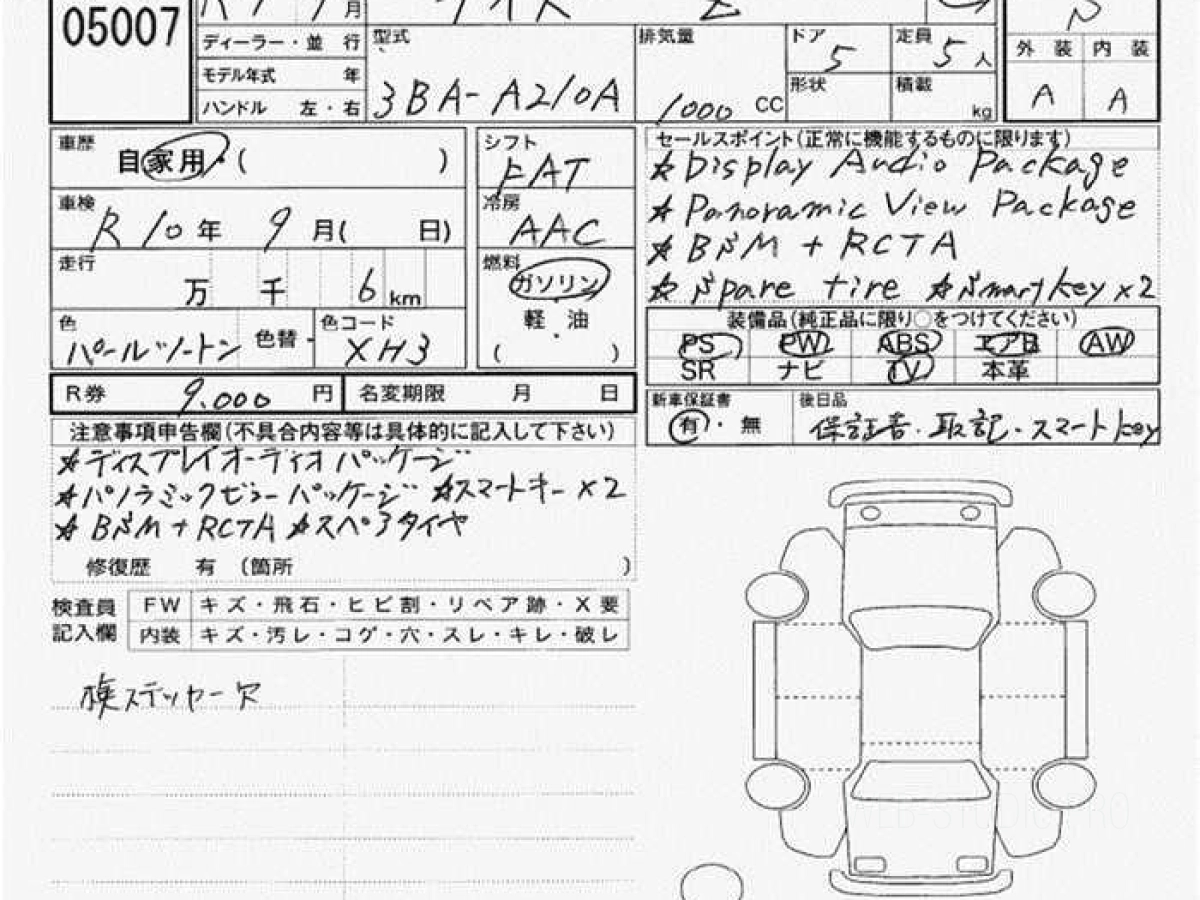 05007
R7 9月
ライズ Z
S
ディーラー・並 行
型式
排気量
ドア 5
定員 5人
外 装 内 装
モデル年式 年
3BA-A210A
1000 CC
形状
積載 kg
A A
ハンドル 左・右
車歴
自家用・( )
シフト
FAT
セールスポイント(正常に機能するものに限ります)
★Display Audio Package
車検
R10年 9月( 日)
冷房
AAC
★Panoramic View Package
★BSM + RCTA
走行
万 千 6km
燃料
ガソリン
★Spare tire ★Smart key×2
色
パールツートン
色替・
色コード
XH3
軽・油
( )
装備品(純正品に限り○をつけてください)
PS PW ABS エアB AW
SR ナビ TV 本革
R券 9.000円
名変期限 月 日
新車保証書
有・無
後日品
保証書・取記・スマートkey
注意事項申告欄(不具合内容等は具体的に記入して下さい)
★ディスプレイオーディオパッケージ
★パノラミックビューパッケージ ★スマートキー×2
★BSM+RCTA ★スペアタイヤ
修復歴 有 (箇所 )
検査員
記入欄
FW キズ・飛石・ヒビ割・リペア跡・X要
内装 キズ・汚レ・コゲ・穴・スレ・キレ・破レ
検ステッカー欠